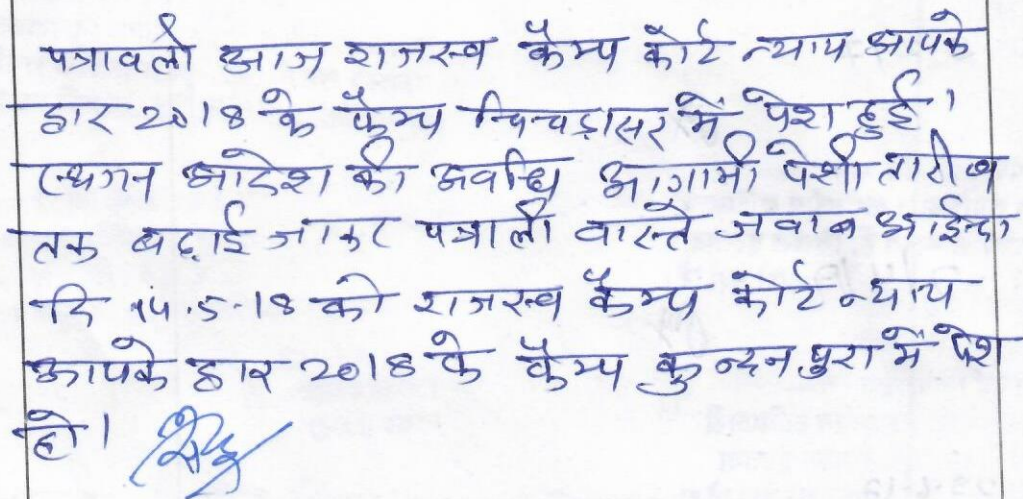 पत्रावली आज राजस्व कैम्प कोर्ट न्याय आपके
द्वार 2018 के कैम्प चिचड़ासर में पेश हुई।
स्थगन आदेश की अवधि आगामी पेशी तारीख
तक बढ़ाई जाकर पत्राली वास्ते जवाब आईन्दा
दि 14.5.18 को राजस्व कैम्प कोर्ट न्याय
आपके द्वार 2018 के कैम्प कुन्दनपुरा में पेश
हो।